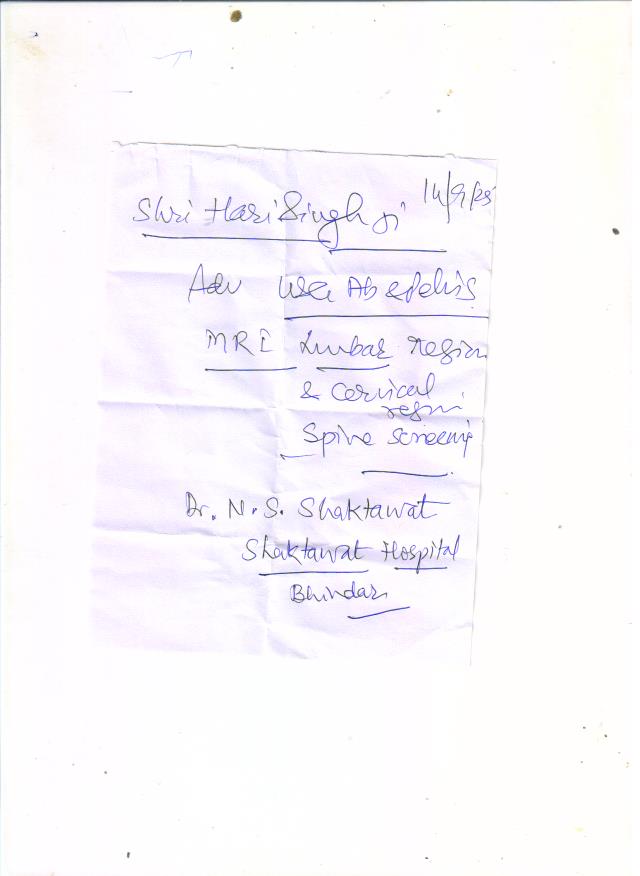 Shri Hari Singh ji 14/9/25
Adv USG Ab & pelvis
MRI Lumbar region
& Cervical
region
Spine Screening
Dr. N. S. Shaktawat
Shaktawat Hospital
Bhindar